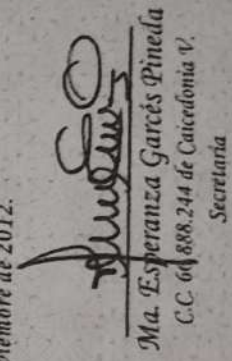 de 2012.
Ma. Esperanza Garcés Pineda
C.C. 66.888.244 de Caicedonia V.
Secretaria